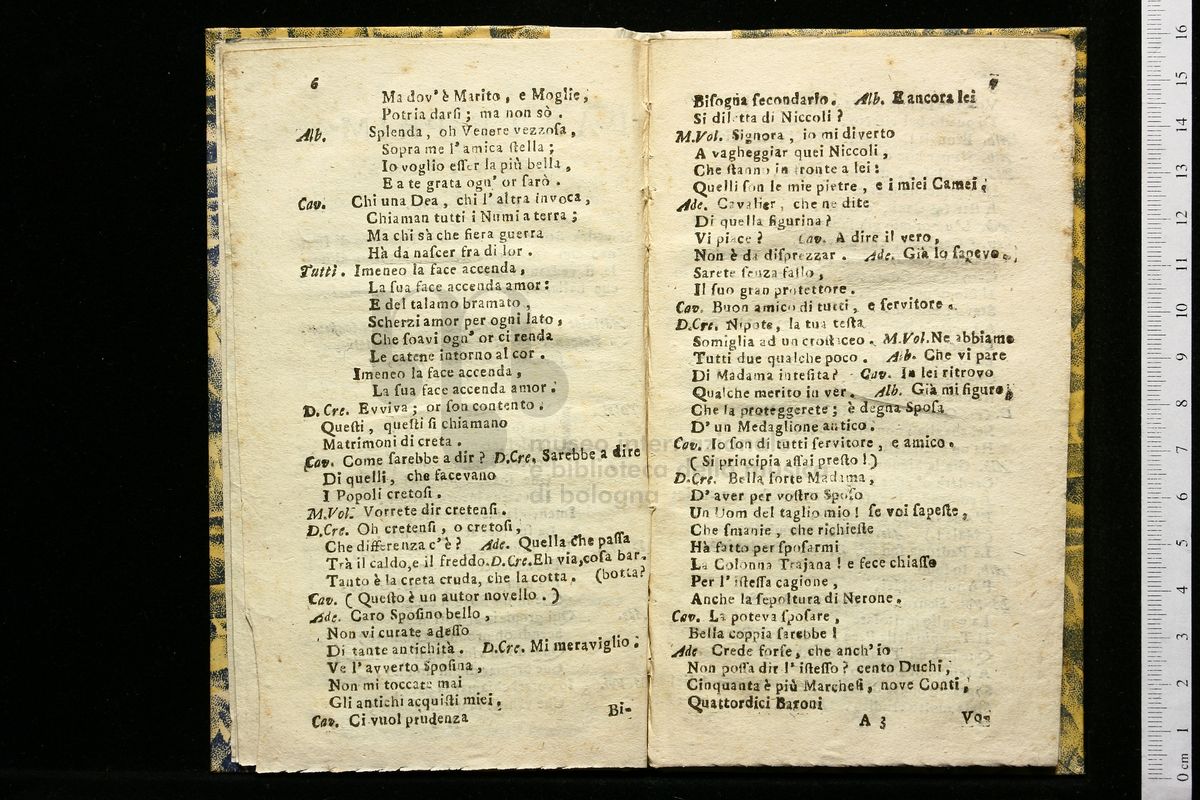 6
Ma dov' è Marito, e Moglie,
Potria darsi; ma non sò.
Alb. Splenda, oh Venere vezzosa,
Sopra me l' amica stella;
Io voglio esser la più bella,
E a te grata ogn' or sarò.
Cav. Chi una Dea, chi l' altra invoca,
Chiaman tutti i Numi a terra;
Ma chi sà che fiera guerra
Hà da nascer fra di lor.
Tutti. Imeneo la face accenda,
La sua face accenda amor:
E del talamo bramato,
Scherzi amor per ogni lato,
Che soavi ogn' or ci renda
Le catene intorno al cor.
Imeneo la face accenda,
La sua face accenda amor.
D. Cre. Evviva; or son contento.
Questi, questi si chiamano
Matrimoni di creta.
Cav. Come sarebbe a dir? D.Cre. Sarebbe a dire
Di quelli, che facevano
I Popoli cretosi.
M.Vol. Vorrete dir cretensi.
D.Cre. Oh cretensi, o cretosi,
Che differenza c' è? Ade. Quella che passa
Trà il caldo, e il freddo. D.Cre. Eh via, cosa bar-
Tanto è la creta cruda, che la cotta. (botta?
Cav. (Questo è un autor novello.)
Ade. Caro Sposino bello,
Non vi curate adesso
Di tante antichità. D.Cre. Mi meraviglio:
Ve l' avverto Sposina,
Non mi toccate mai
Gli antichi acquisti miei.
Cav. Ci vuol prudenza
Bi-
7
Bisogna secondarlo. Alb. E ancora lei
Si diletta di Niccoli?
M.Vol. Signora, io mi diverto
A vagheggiar quei Niccoli,
Che stanno in fronte a lei:
Quelli son le mie pietre, e i miei Camei.
Ade. Cavalier, che ne dite
Di quella figurina?
Vi piace? Cav. A dire il vero,
Non è da disprezzar. Ade. Già lo sapevo.
Sarete senza fallo,
Il suo gran protettore.
Cav. Buon amico di tutti, e servitore.
D.Cre. Nipote, la tua testa
Somiglia ad un crostaceo. M.Vol. Ne abbiamo
Tutti due qualche poco. Alb. Che vi pare
Di Madama intesita? Cav. In lei ritrovo
Qualche merito in ver. Alb. Già mi figuro,
Che la proteggerete; è degna Sposa
D' un Medaglione antico.
Cav. Io son di tutti servitore, e amico.
(Si principia assai presto!)
D.Cre. Bella sorte Madama,
D' aver per vostro Sposo
Un Uom del taglio mio! se voi sapeste,
Che smanie, che richieste
Hà fatto per sposarmi
La Colonna Trajana! e fece chiasso
Per l' istessa cagione,
Anche la sepoltura di Nerone.
Cav. La poteva sposare,
Bella coppia sarebbe!
Ade Crede forse, che anch' io
Non possa dir l' istesso? cento Duchi,
Cinquanta è più Marchesi, nove Conti,
Quattordici Baroni
A 3 Vo-
museo internazionale
e biblioteca della musica
di bologna